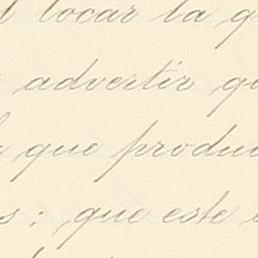 tocar la q
advertir qu
que produc
s: que este